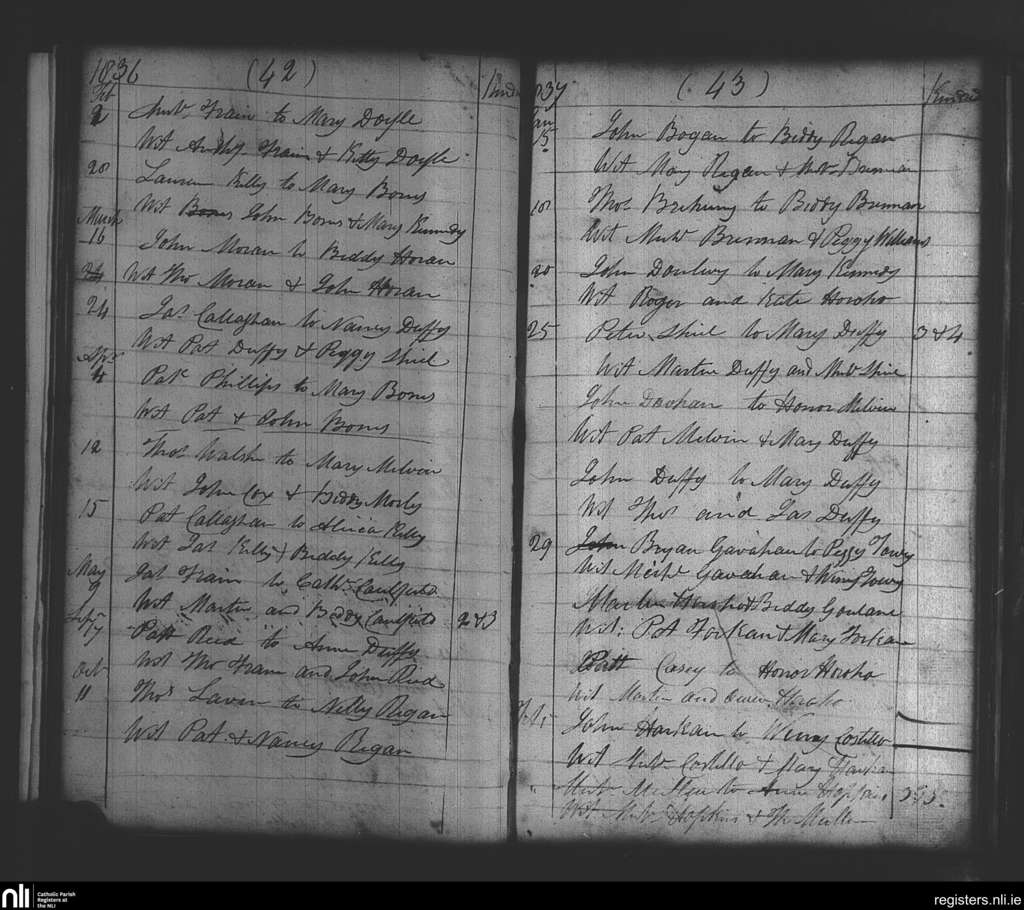 1836 (42) Kindrd
Feb
2 Micl. Frain to Mary Doyle
Wit Anthy. Frain & Kitty Doyle
20
Kelly to Mary Bones
Wit John Bones & Mary Kennedy
March
16 John Moran to Biddy Horan
Wit Tho Moran & John Horan
24 Jas Callaghan to Nancy Duffy
Wit Pat Duffy & Peggy Shiel
Apr
4 Patk Phillips to Mary Bones
Wit Pat & John Bones
12 Thos Walsh to Mary Melvin
Wit John Cox & Biddy Morly
15 Pat Callaghan to Alicia Kelly
Wit Jas Kelly & Biddy Kelly
May
9 Jas Frain to Cathn. Caulfield
Wit Martin and Biddy Caulfield 2&3
Sept
7 Patt Reid to Anne Duffy
Wit Tho Frain and John Reid
Oct
11 Thos Laven to Nelly Regan
Wit Pat & Nancy Regan
1837 (43) Kindrd
Jan
15 John Bogan to Biddy Regan
Wit Mary Regan & Brennan
Thos to Biddy Brennan
Wit Micl Brennan & Peggy Williams
20 John to Mary Kennedy
Wit Roger and Kate Horoho
25 Peter Shiel to Mary Duffy 3&4
Wit Martin Duffy and Micl Shiel
John to Honor Melvin
Wit Pat Melvin & Mary Duffy
John Duffy to Mary Duffy
Wit Thos and Jas Duffy
29 John Bryan Gavahan to Peggy Towey
Wit Gavahan & Winny Towey
Martin & Biddy
Wit: Pat Forkan & Mary Forkan
Patt Casey to Honor Horoho
Wit Martin and Horoho
Feb 5 John Harkan to Winny Costillo
Wit Micl Costillo & Mary Harkan
" to Anne
Wit Micl Hopkins & Th
nli Catholic Parish
Registers at
the NLI
registers.nli.ie